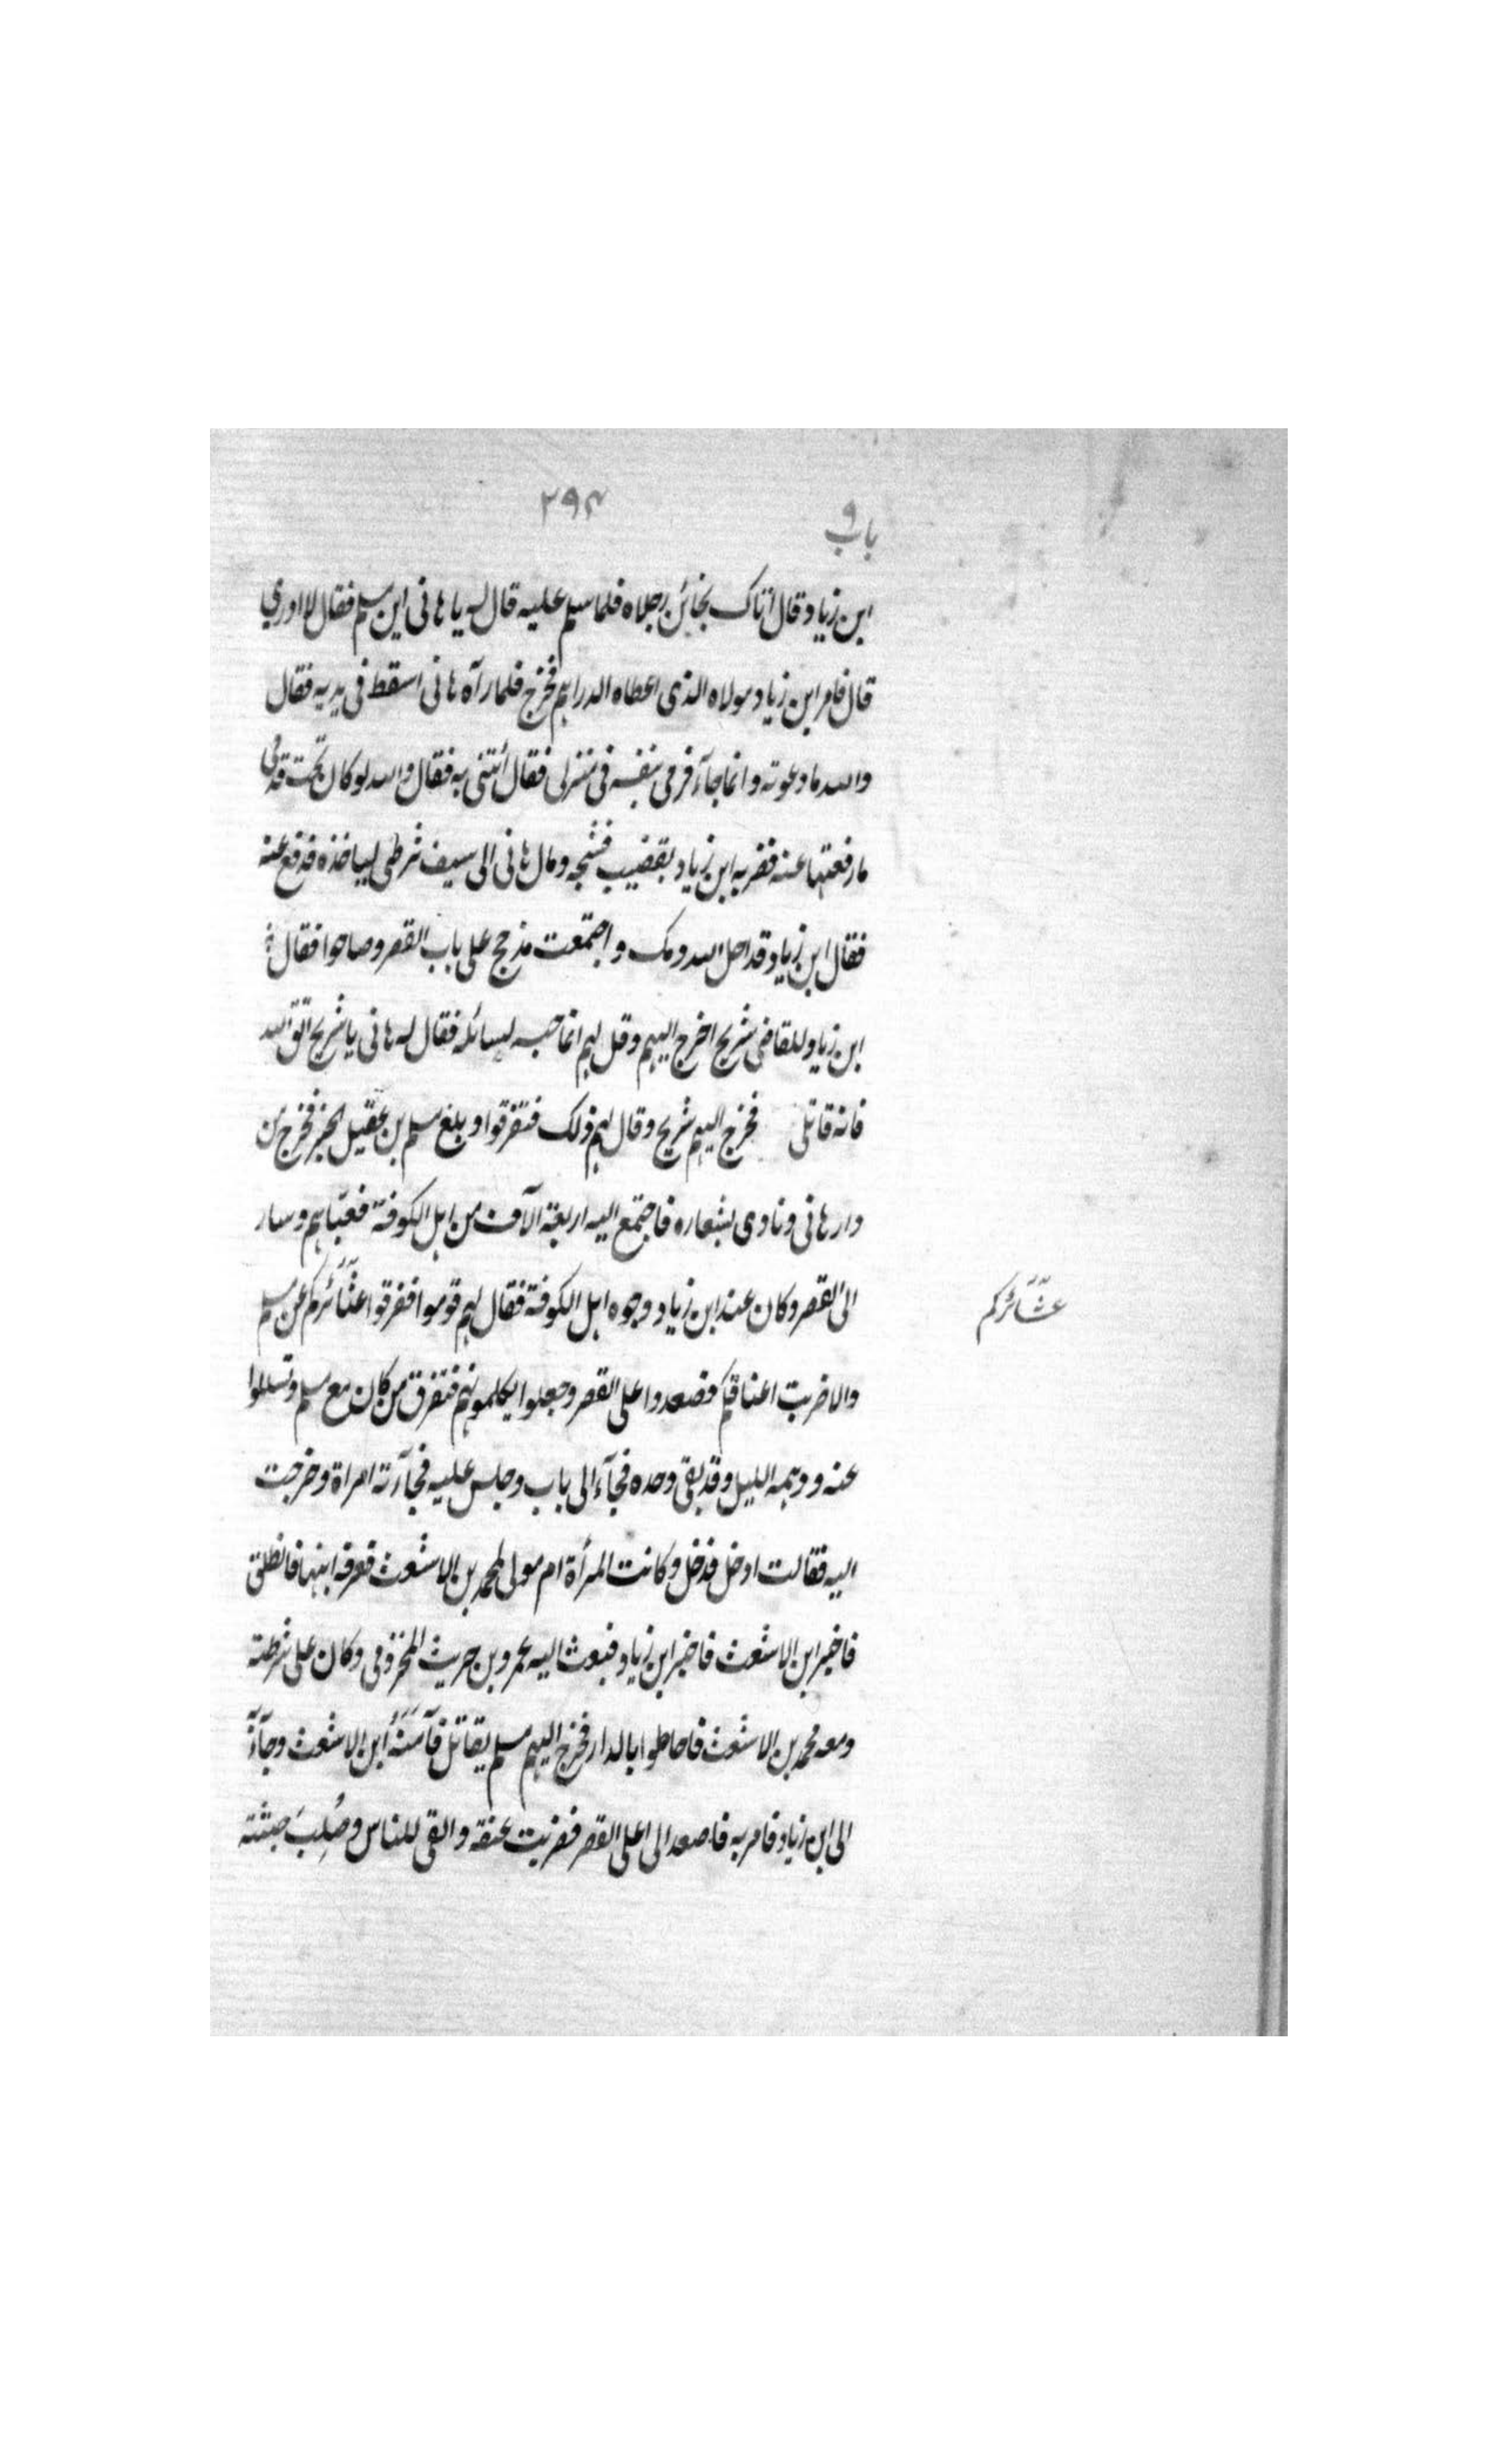 ۲۹۴
باب ۹
ابن زياد وقال اتاك بخائن رجلاه فلما سلم عليه قال له يا هانى اين مسلم فقال لا ادري
قال فامر ابن زياد مولاه الذى اعطاه الدراهم فخرج فلما رآه هانى اسقط فى يديه فقال
والله ما دعوته وانما جآء فرمى بنفسه فى منزلى فقال ائتنى به فقال والله لو كان تحت قدمى
ما رفعتها عنه فضربه ابن زياد بقضيب فشجه ومال هانى الى سيف شرطى لياخذه فدفع عنه
فقال ابن زياد قد احل الله دمك واجتمعت مذحج على باب القصر وصاحوا فقال
ابن زياد للقاضى شريح اخرج اليهم وقل لهم انما حبسه ليسائله فقال له هانى يا شريح اتق الله
فانه قاتلى فخرج اليهم شريح وقال لهم ذلك فتفرقوا وبلغ مسلم بن عقيل الخبر فخرج من
دار هانى ونادى بشعاره فاجتمع اليه اربعة الآف من اهل الكوفة فعبّاهم وسار
الى القصر وكان عند ابن زياد وجوه اهل الكوفة فقال لهم قوموا ففرقوا عشَآئركم عن مسلم
عشَآئركم
والا ضربت اعناقكم فصعدوا على القصر وجعلوا يكلمونهم فتفرق من كان مع مسلم وتسللوا
عنه ودهمه الليل وقد بقى وحده فجآء الى باب وجلس عليه فجآءته امراة وخرجت
اليه فقالت ادخل فدخل وكانت المرأة ام مولى لمحمد بن الاشعث فعرفه ابنها فانطلق
فاخبر ابن الاشعث فاخبر ابن زياد فبعث اليه عمرو بن حريث المخزومى وكان على شرطته
ومعه محمد بن الاشعث فاحاطوا بالدار فخرج اليهم مسلم يقاتل فآمَنَهُ ابن الاشعث وجآءَ
الى ابن زياد فامر به فاصعد الى اعلى القصر فضربت عنقه والقى للناس وصُلِبَ جثته